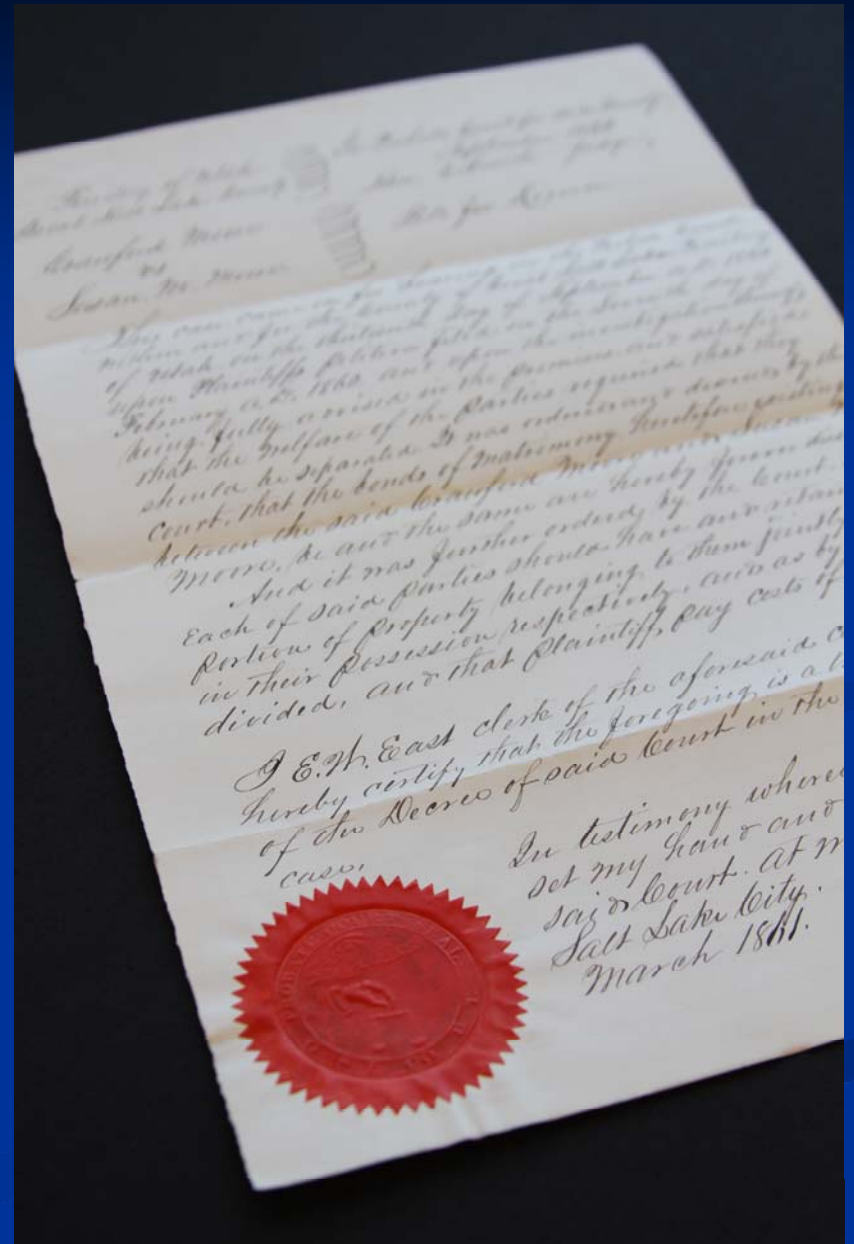 Territory of Utah
Great Salt Lake County
Crawford Moore
vs
Susan. M. Moore
In Probate Court for said County
September 1860
Judge,
Bill for Divorce
This case came on for hearing in the Probate Court
within and for the County of Great Salt Lake Territory
of Utah on the thirteenth day of September A.D. 1860
upon Plaintiffs petition filed on the Second day of
February A.D. 1860 and upon the investigation
being fully advised in the premises and satisfied
that the welfare of the Parties required that they
should be separated It was ordered and decreed by the
Court, that the bonds of Matrimony heretofore existing
between the said Crawford Moore and Susan
Moore, be and the same are hereby forever
And it was further ordered, by the Court.
Each of said Parties should have and retain
Portion of Property belonging to them jointly
in their Possession respectively, and as by
divided, and that Plaintiff, pay costs of
I E.W. East clerk of the aforesaid
hereby certify that the foregoing is a
of the Decree of said Court in the
case.
In testimony where
set my hand and
said Court. at
Salt Lake City.
March 1861.
PROBATE COURT SEAL